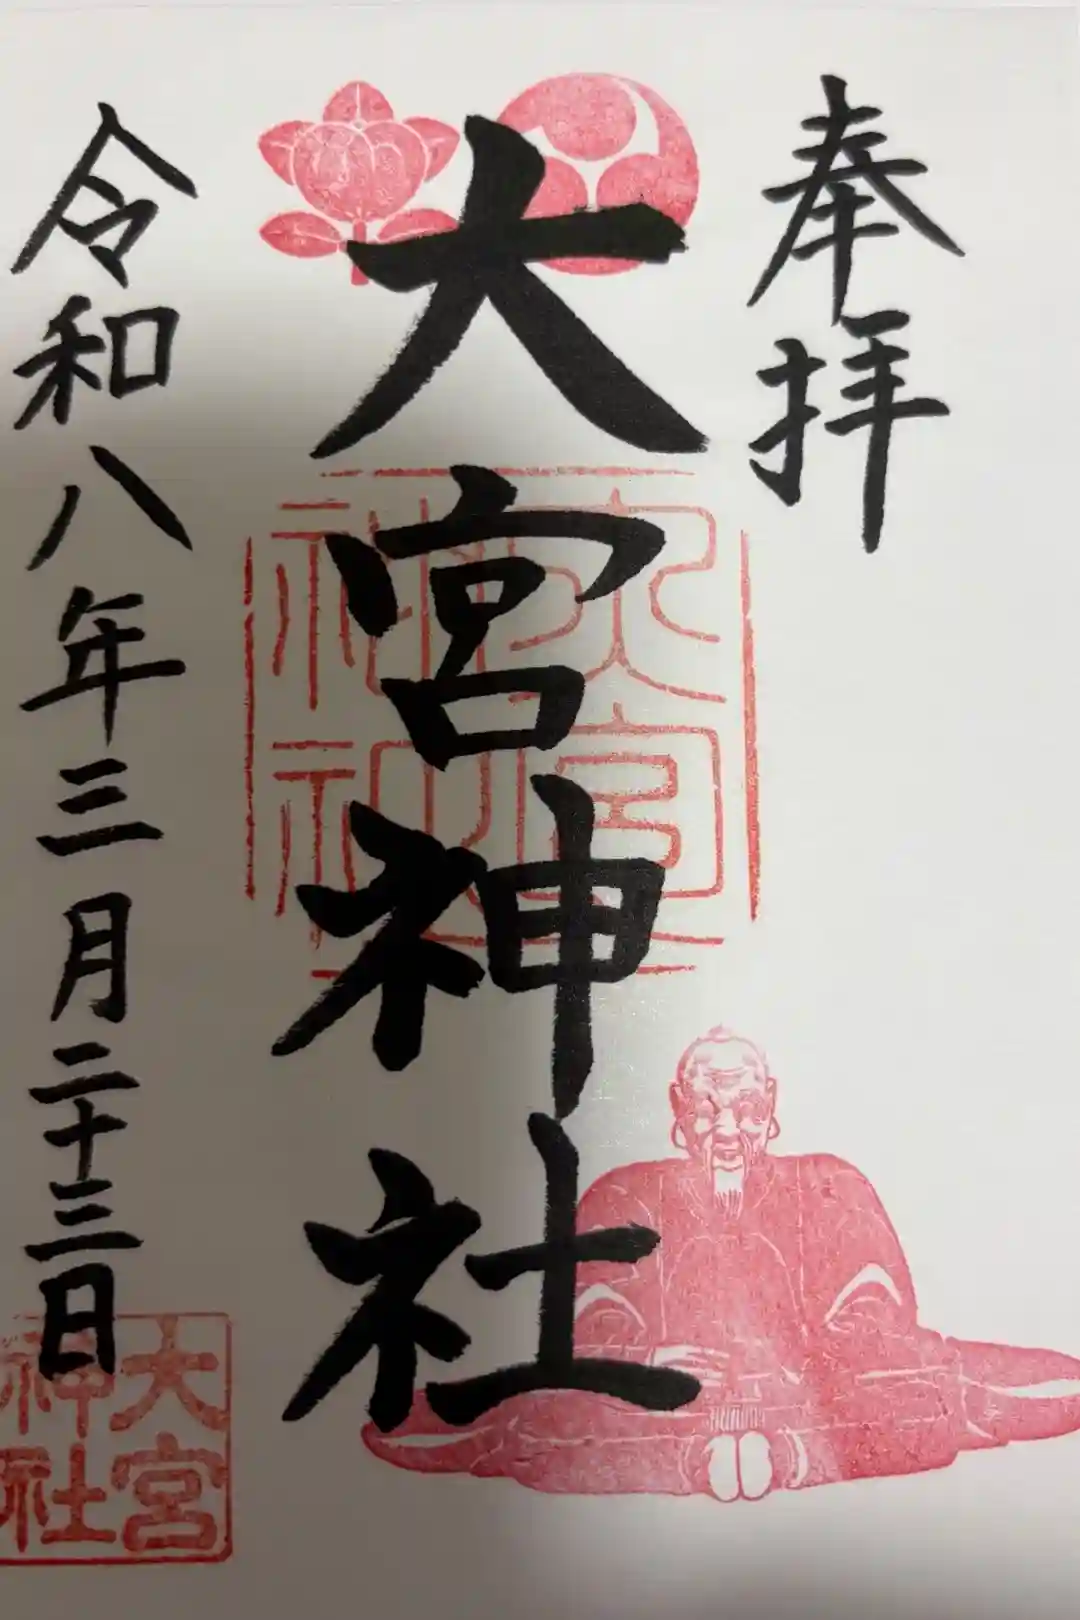 奉拝
大宮神社
大宮神社
令和八年三月二十三日
大宮神社